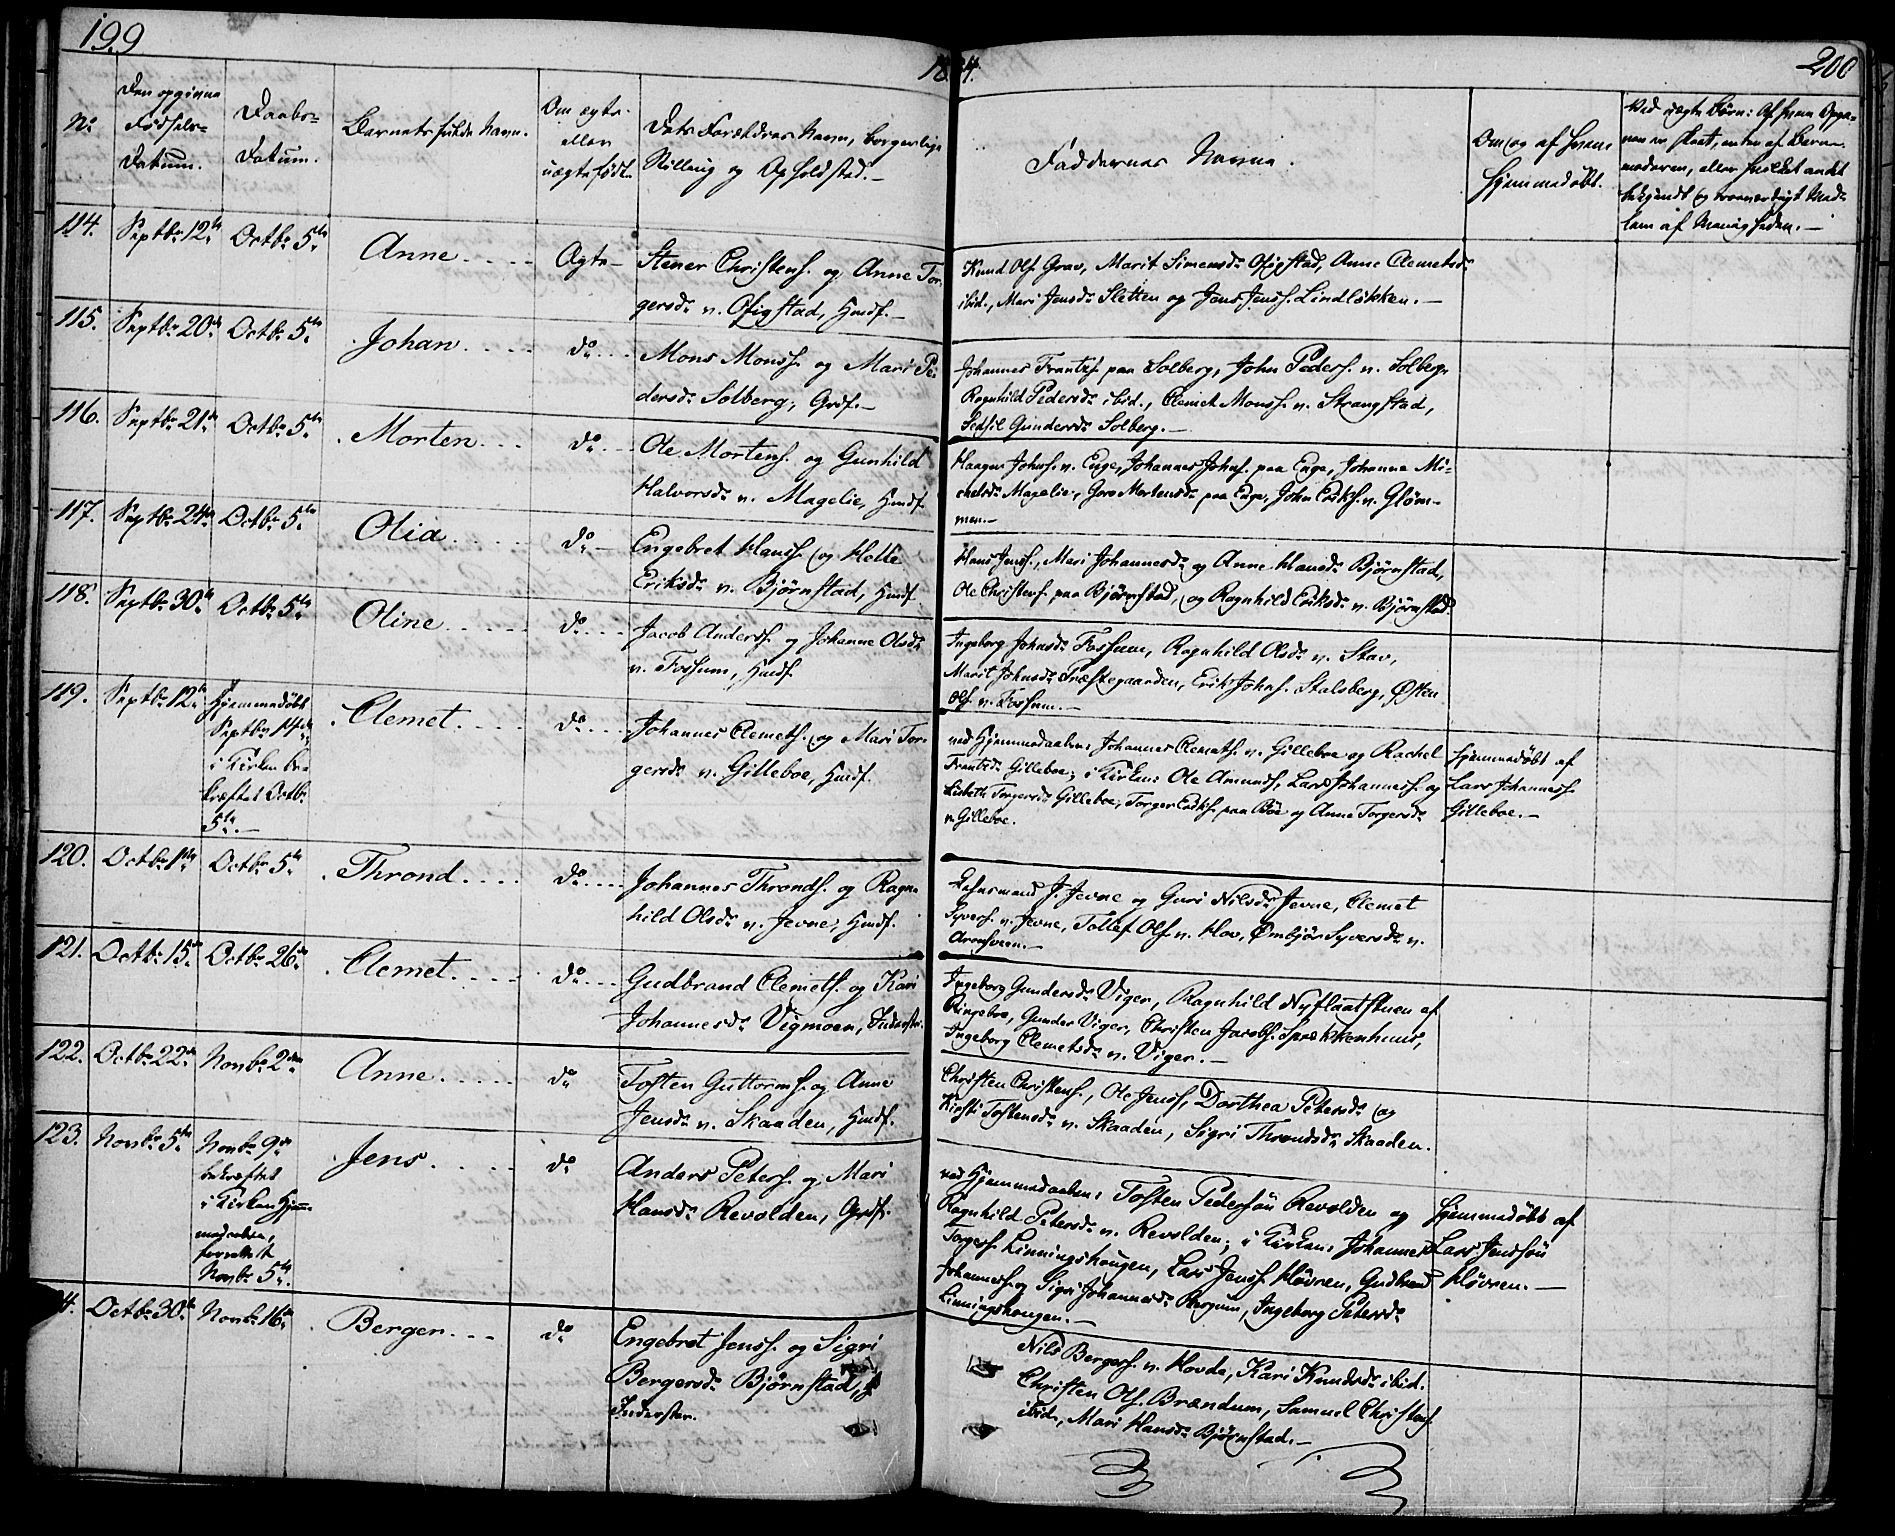 199
18 4.
200
No
Den opgivne Fødsels-Datum.
Daabs-Datum.
Barnets fulde Navn.
Om ægte eller uægte født.
Dets Forældres Navn, borgerlige Stilling og Opholdsted.
Faddernes Navne.
Om og af hvem hjemmedøbt.
Ved uægte Børn: Af hvem Opga-
ven er skeet, enten af Barne-
moderen, eller hvilket andet
bekjendt og troværdigt Med-
lem af Menigheden.
114. Septbr 12te Octbr 5te Anne Ægte
Stener Christens. og Anne Tor-
gersdr n. Ofigstad, Husf.
Knud Ols. Grav, Marit Simensdr Ofigstad, Anne Clemetsdr
ibid., Mari Jensdr Sletten og Jens Jenss. Lindløkken.
115. Septbr 20de Octbr 5te Johan do
Mons Monss. og Mari Pe-
dersdr Solberg, Grdf.
Johannes Frantzs. paa Solberg, John Peders. n. Solberg,
Ragnhild Pedersdr ibid., Clemet Monss. n. Strangstad,
Sedsil Gundersdr Solberg.
116. Septbr 21de Octbr 5te Morten do
Ole Mortens. og Gunhild
Halvorsdr n. Magelie, Husf.
Haagen Johns. n. Enge, Johannes Johns. paa Enge, Johanne Mi-
chelsdr Magelie, Goro Mortensdr paa Enge, John Eriks. n. Glom-
men.
117. Septbr 24de Octbr 5te Olia do
Engebret Hanss. og Helle
Eriksdr n. Bjørnstad, Husf.
Hans Jenss., Mari Johannesdr og Anne Hansdr Bjørnstad,
Ole Christens. paa Bjørnstad, og Ragnhild Eriksdr n. Bjørnstad.
118. Septbr 30te Octbr 5te Oline do
Jacob Anders. og Johanne Olsdr
n. Fossum, Husf.
Ingeborg Johnsdr Fossum, Ragnhild Olsdr n. Stav,
Marit Johnsdr Præstegaarden, Erik Johns. Stalsberg, Østen
Ols. n. Fossum.
119. Septbr 12te Hjemmedøbt
Septbr 14de,
i Kirken be-
kræftet Octbr
5te.
Clemet do
Johannes Clemets. og Mari Tor-
gersdr n. Gilleboe, Husf.
ved Hjemmedaaben: Johannes Clemets. n. Gilleboe og Rachel
Frantzdr Gilleboe; i Kirken: Ole Amunds., Lars Johanness. og
Lisbeth Torgersdr Gilleboe, Torger Eriks. paa Bøe og Anne Torgersdr
n. Gilleboe.
Hjemmedøbt af
Lars Johanness.
Gilleboe.
120. Octbr 1ste Octbr 5te Thrond do
Johannes Thronds. og Ragn-
hild Olsdr n. Jevne, Husf.
Lehnsmand J. Jevne og Guri Nilsdr Jevne, Clemet
Syvers. n. Jevne, Tollef Ols. n. Hov, Ombjør Syversdr n.
Arnsveen.
121. Octbr 15de Octbr 26de Clemet do
Gudbrand Clemets. og Kari
Johannesdr Vigmoen, Inderster.
Ingeborg Gundersdr Viger, Ragnhild Nyflaatstuen af
Ringeboe, Gunder Viger, Christen Jacobs. Sprækkenhuus,
Ingeborg Clemetsdr n. Viger.
122. Octbr 22de Novbr 2den Anne do
Tosten Guttorms. og Anne
Jensdr n. Skaaden, Husf.
Christen Christens., Ole Jenss., Dorthea Petersdr og
Kirsti Tostensdr n. Skaaden, Sigri Throndsdr Skaaden.
123. Novbr 5te Novbr 9de
bekræftet
i Kirken Hjem-
medaaben,
forrettet
Novbr 5te.
Jens do
Anders Peters. og Mari
Hansdr Revolden, Grdf.
ved Hjemmedaaben: Tosten Pedersøn Revolden og
Ragnhild Petersdr n. Revolden; i Kirken: Johannes
Torgers. Linningshougen, Lars Jenss. Høvren, Gudbrand
Johanness. og Sigri Johannesdr Bergum, Ingeborg Petersdr
Linningshougen.
Hjemmedøbt af
Lars Jenssøn
Høvren.
4. Octbr 30te Novbr 16de Berger do
Engebret Jenss. og Sigri
Bergersdr Bjørnstad,
Inderster.
Nils Bergers. n. Hovde, Kari Knudsdr ibid.
Christen Ols. Brændum, Samuel Christens.
ibid., Mari Hansdr Bjørnstad.